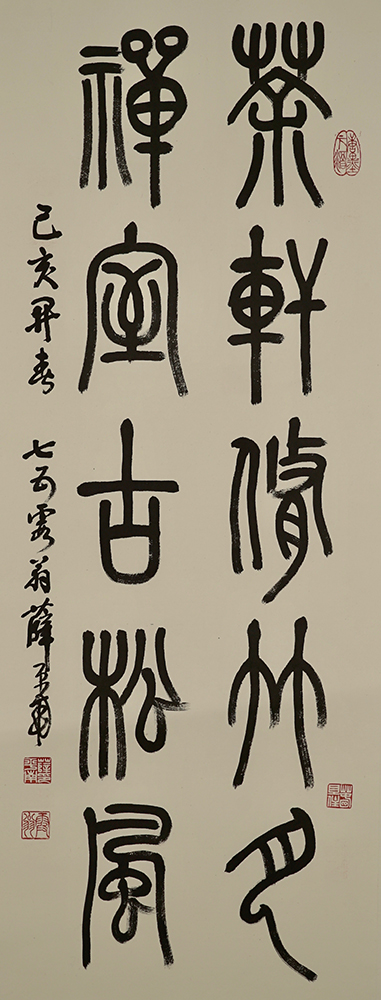 茶軒脩竹月
禪室古松風
己亥開春 七五翁薛平南